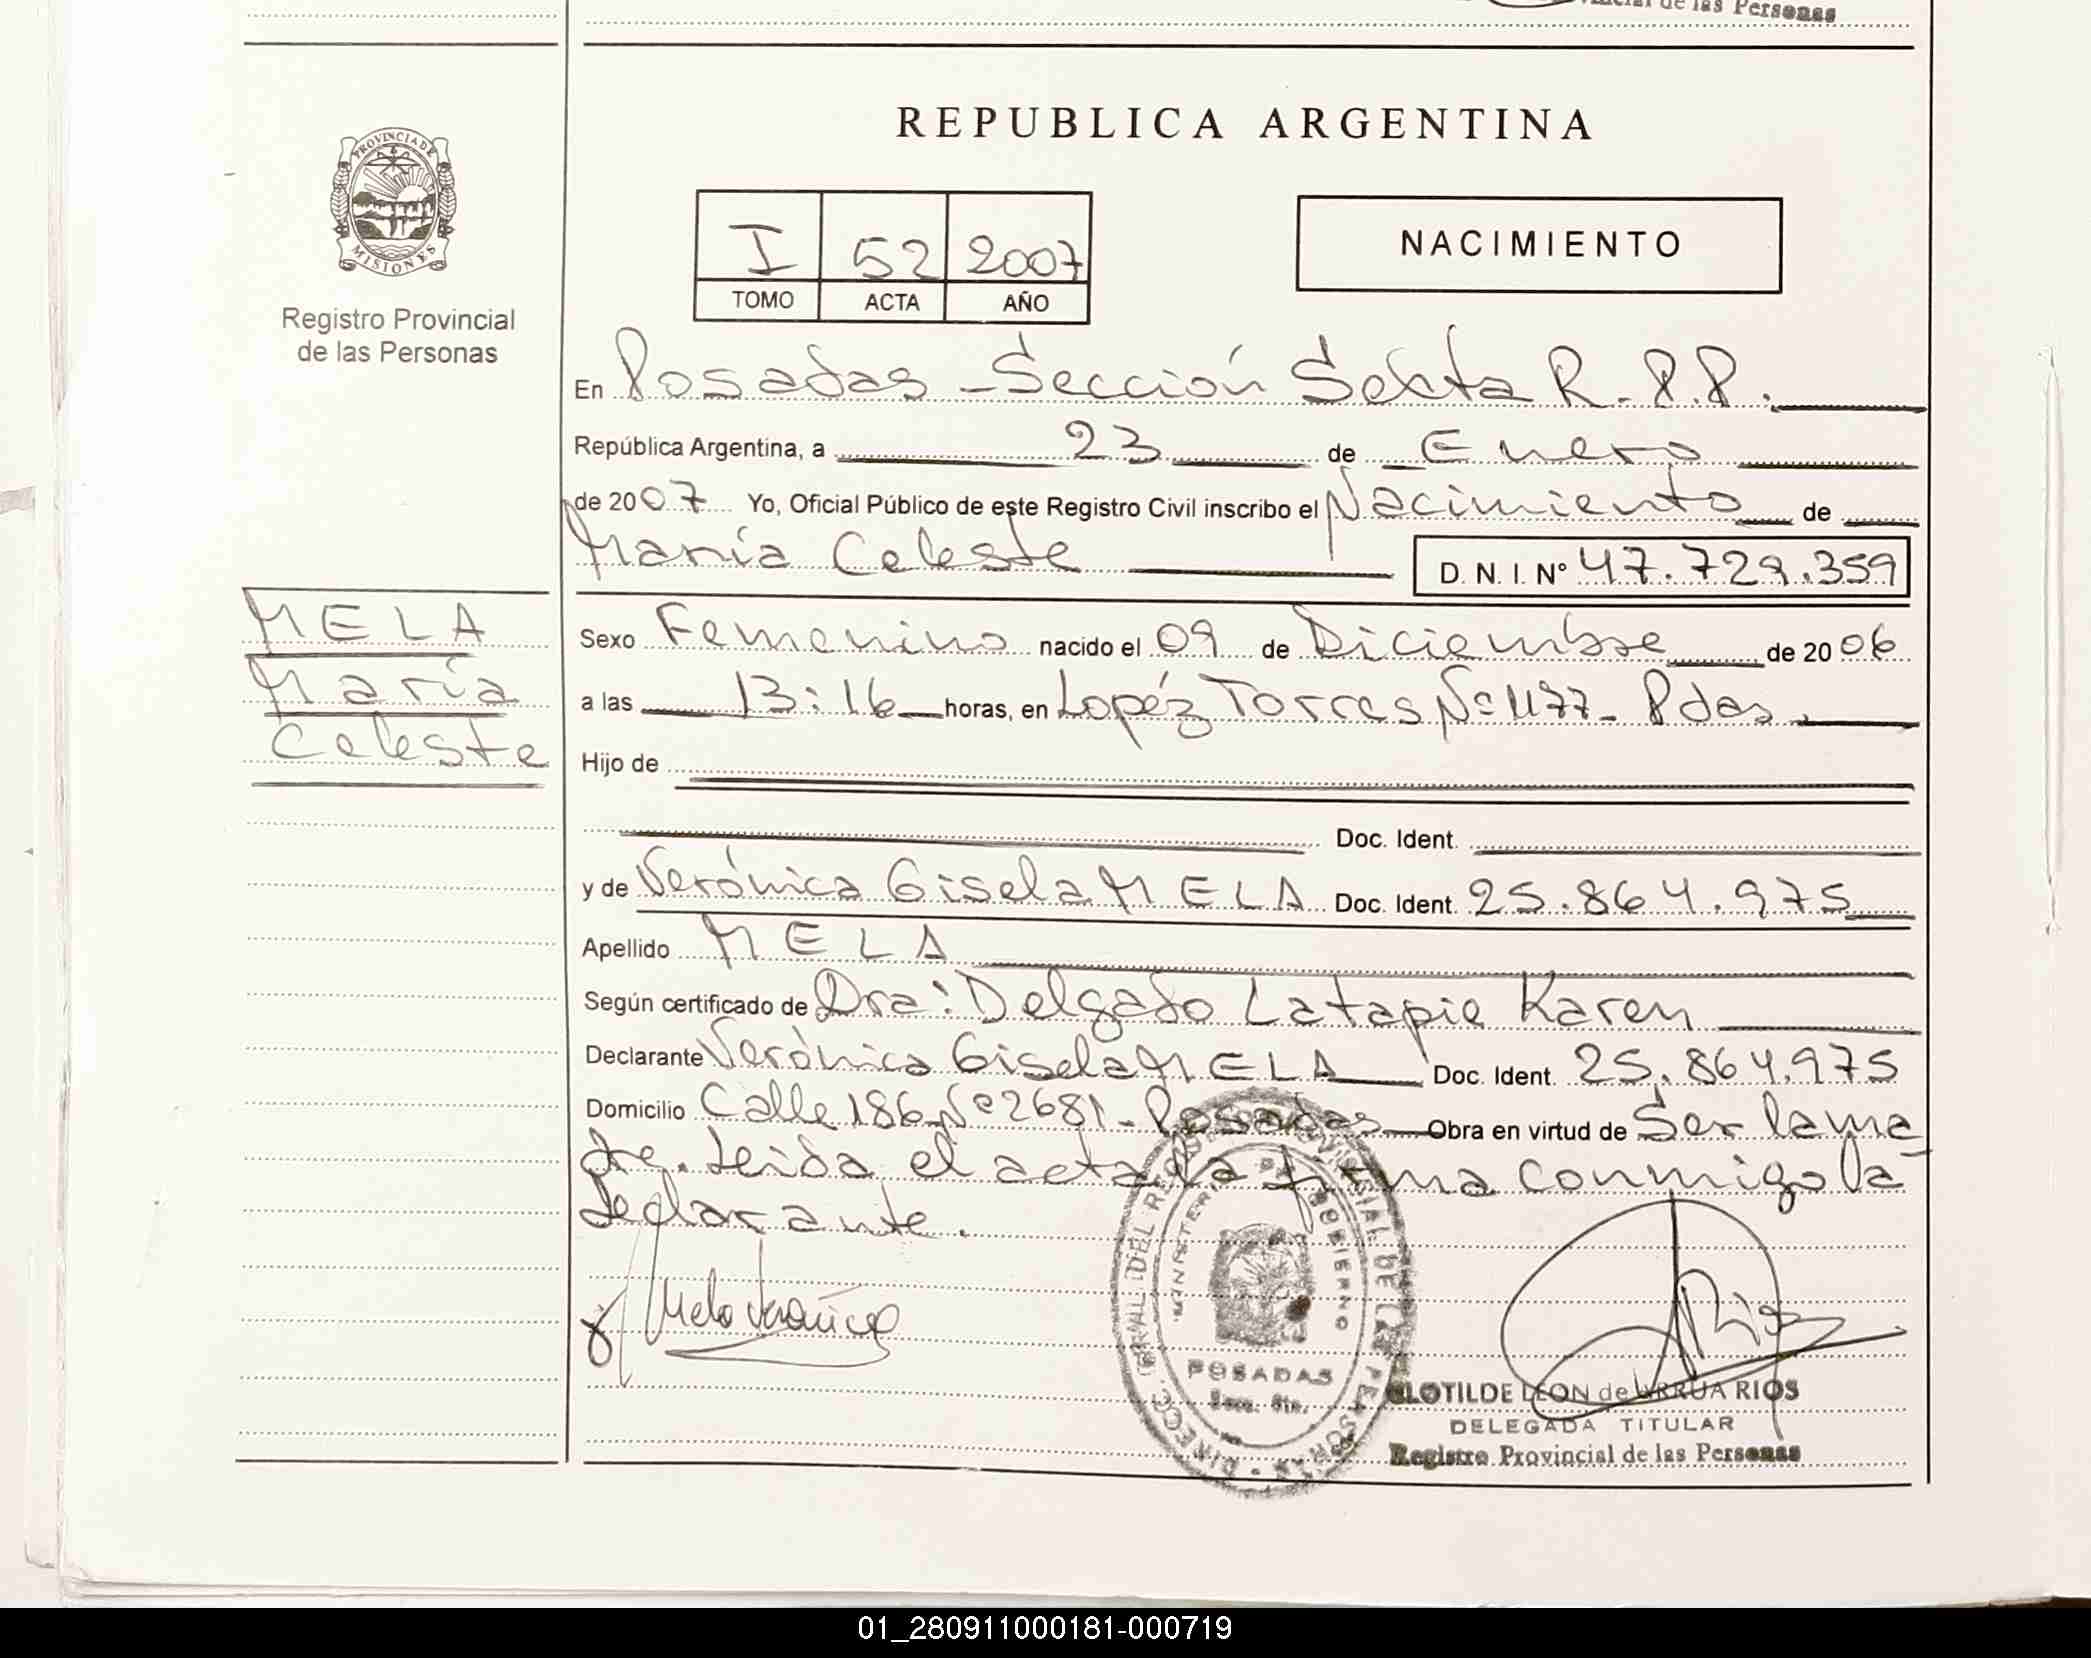 de las Personas
REPUBLICA ARGENTINA
PROVINCIA DE
MISIONES
Registro Provincial
de las Personas
I 52 2007
TOMO ACTA AÑO
NACIMIENTO
En Posadas - Sección Sexta R.P.P.
República Argentina, a 23 de Enero
de 2007 Yo, Oficial Público de este Registro Civil inscribo el Nacimiento de
María Celeste D.N.I. Nº 47.729.359
MELA
María
Celeste
Sexo Femenino nacido el 09 de Diciembre de 2006
a las 13:16 horas, en Lopéz Torres Nº 1177 - Pdas.
Hijo de
Doc. Ident.
y de Verónica Gisela MELA Doc. Ident. 25.864.975
Apellido MELA
Según certificado de Dra: Delgado Latapie Karen
Declarante Verónica Gisela MELA Doc. Ident. 25.864.975
Domicilio Calle 186 Nº 2681 - Posadas Obra en virtud de Ser la ma
dre. Leida el acta la firma conmigo la
declarante.
Mela Verónica
POSADAS
Secc. 6ta.
CLOTILDE LEON de ARRUA RIOS
DELEGADA TITULAR
Registro Provincial de las Personas
01_280911000181-000719